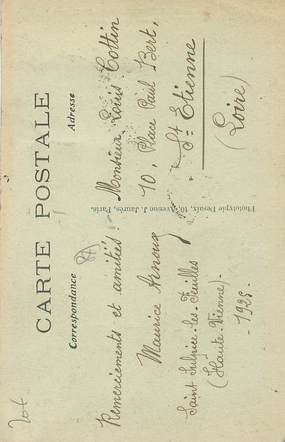 CARTE POSTALE
Correspondance
Adresse
Remerciements et amitiés!
Maurice Arnoux
Saint Sulpice-les-Feuilles
(Haute-Vienne).
- 1925 -
Monsieur Louis Cottin
10, Place Paul Bert,
St Etienne
(Loire)
Phototypie Desaix, 10, Avenue J. Jaurès, Paris.